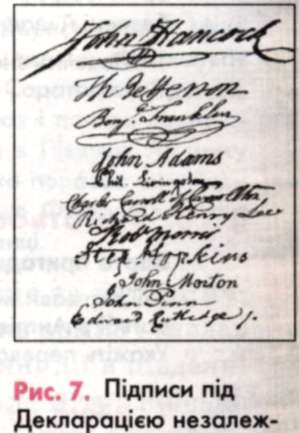 John Hancock
Th Jefferson
Benj. Franklin
John Adams
Phil. Livingston
Charles Carroll of Carrollton
Richard Henry Lee
Robt Morris
Step Hopkins
John Morton
John Penn
Edward Rutledge /.
Рис. 7. Підписи під
Декларацією незалеж-